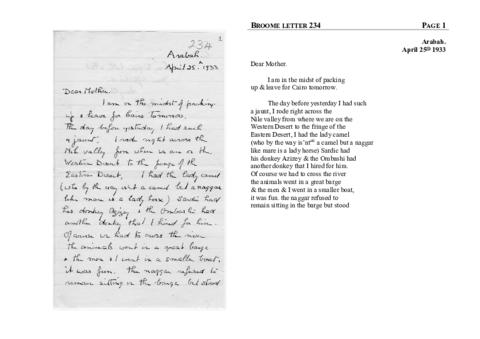 234
1
Arabah.
April 25th 1933
Dear Mother.
I am in the midst of packing
up & leave for Cairo tomorrow.
The day before yesterday I had such
a jaunt. I rode right across the
Nile valley from where we are on the
Western Desert to the fringe of the
Eastern Desert, I had the lady camel
(who by the way isn't a camel but a naggar
like mare is a lady horse) Sardic had
his donkey Azizey & the Ombashi had
another donkey that I hired for him.
Of course we had to cross the river
the animals went in a great barge
& the men & I went in a smaller boat,
it was fun. the naggar refused to
remain sitting in the barge but stood
BROOME LETTER 234 PAGE 1
Arabah.
April 25th 1933
Dear Mother.
I am in the midst of packing
up & leave for Cairo tomorrow.
The day before yesterday I had such
a jaunt, I rode right across the
Nile valley from where we are on the
Western Desert to the fringe of the
Eastern Desert, I had the lady camel
(who by the way is'nt a camel but a naggar
like mare is a lady horse) Sardic had
his donkey Azizey & the Ombashi had
another donkey that I hired for him.
Of course we had to cross the river
the animals went in a great barge
& the men & I went in a smaller boat,
it was fun. the naggar refused to
remain sitting in the barge but stood